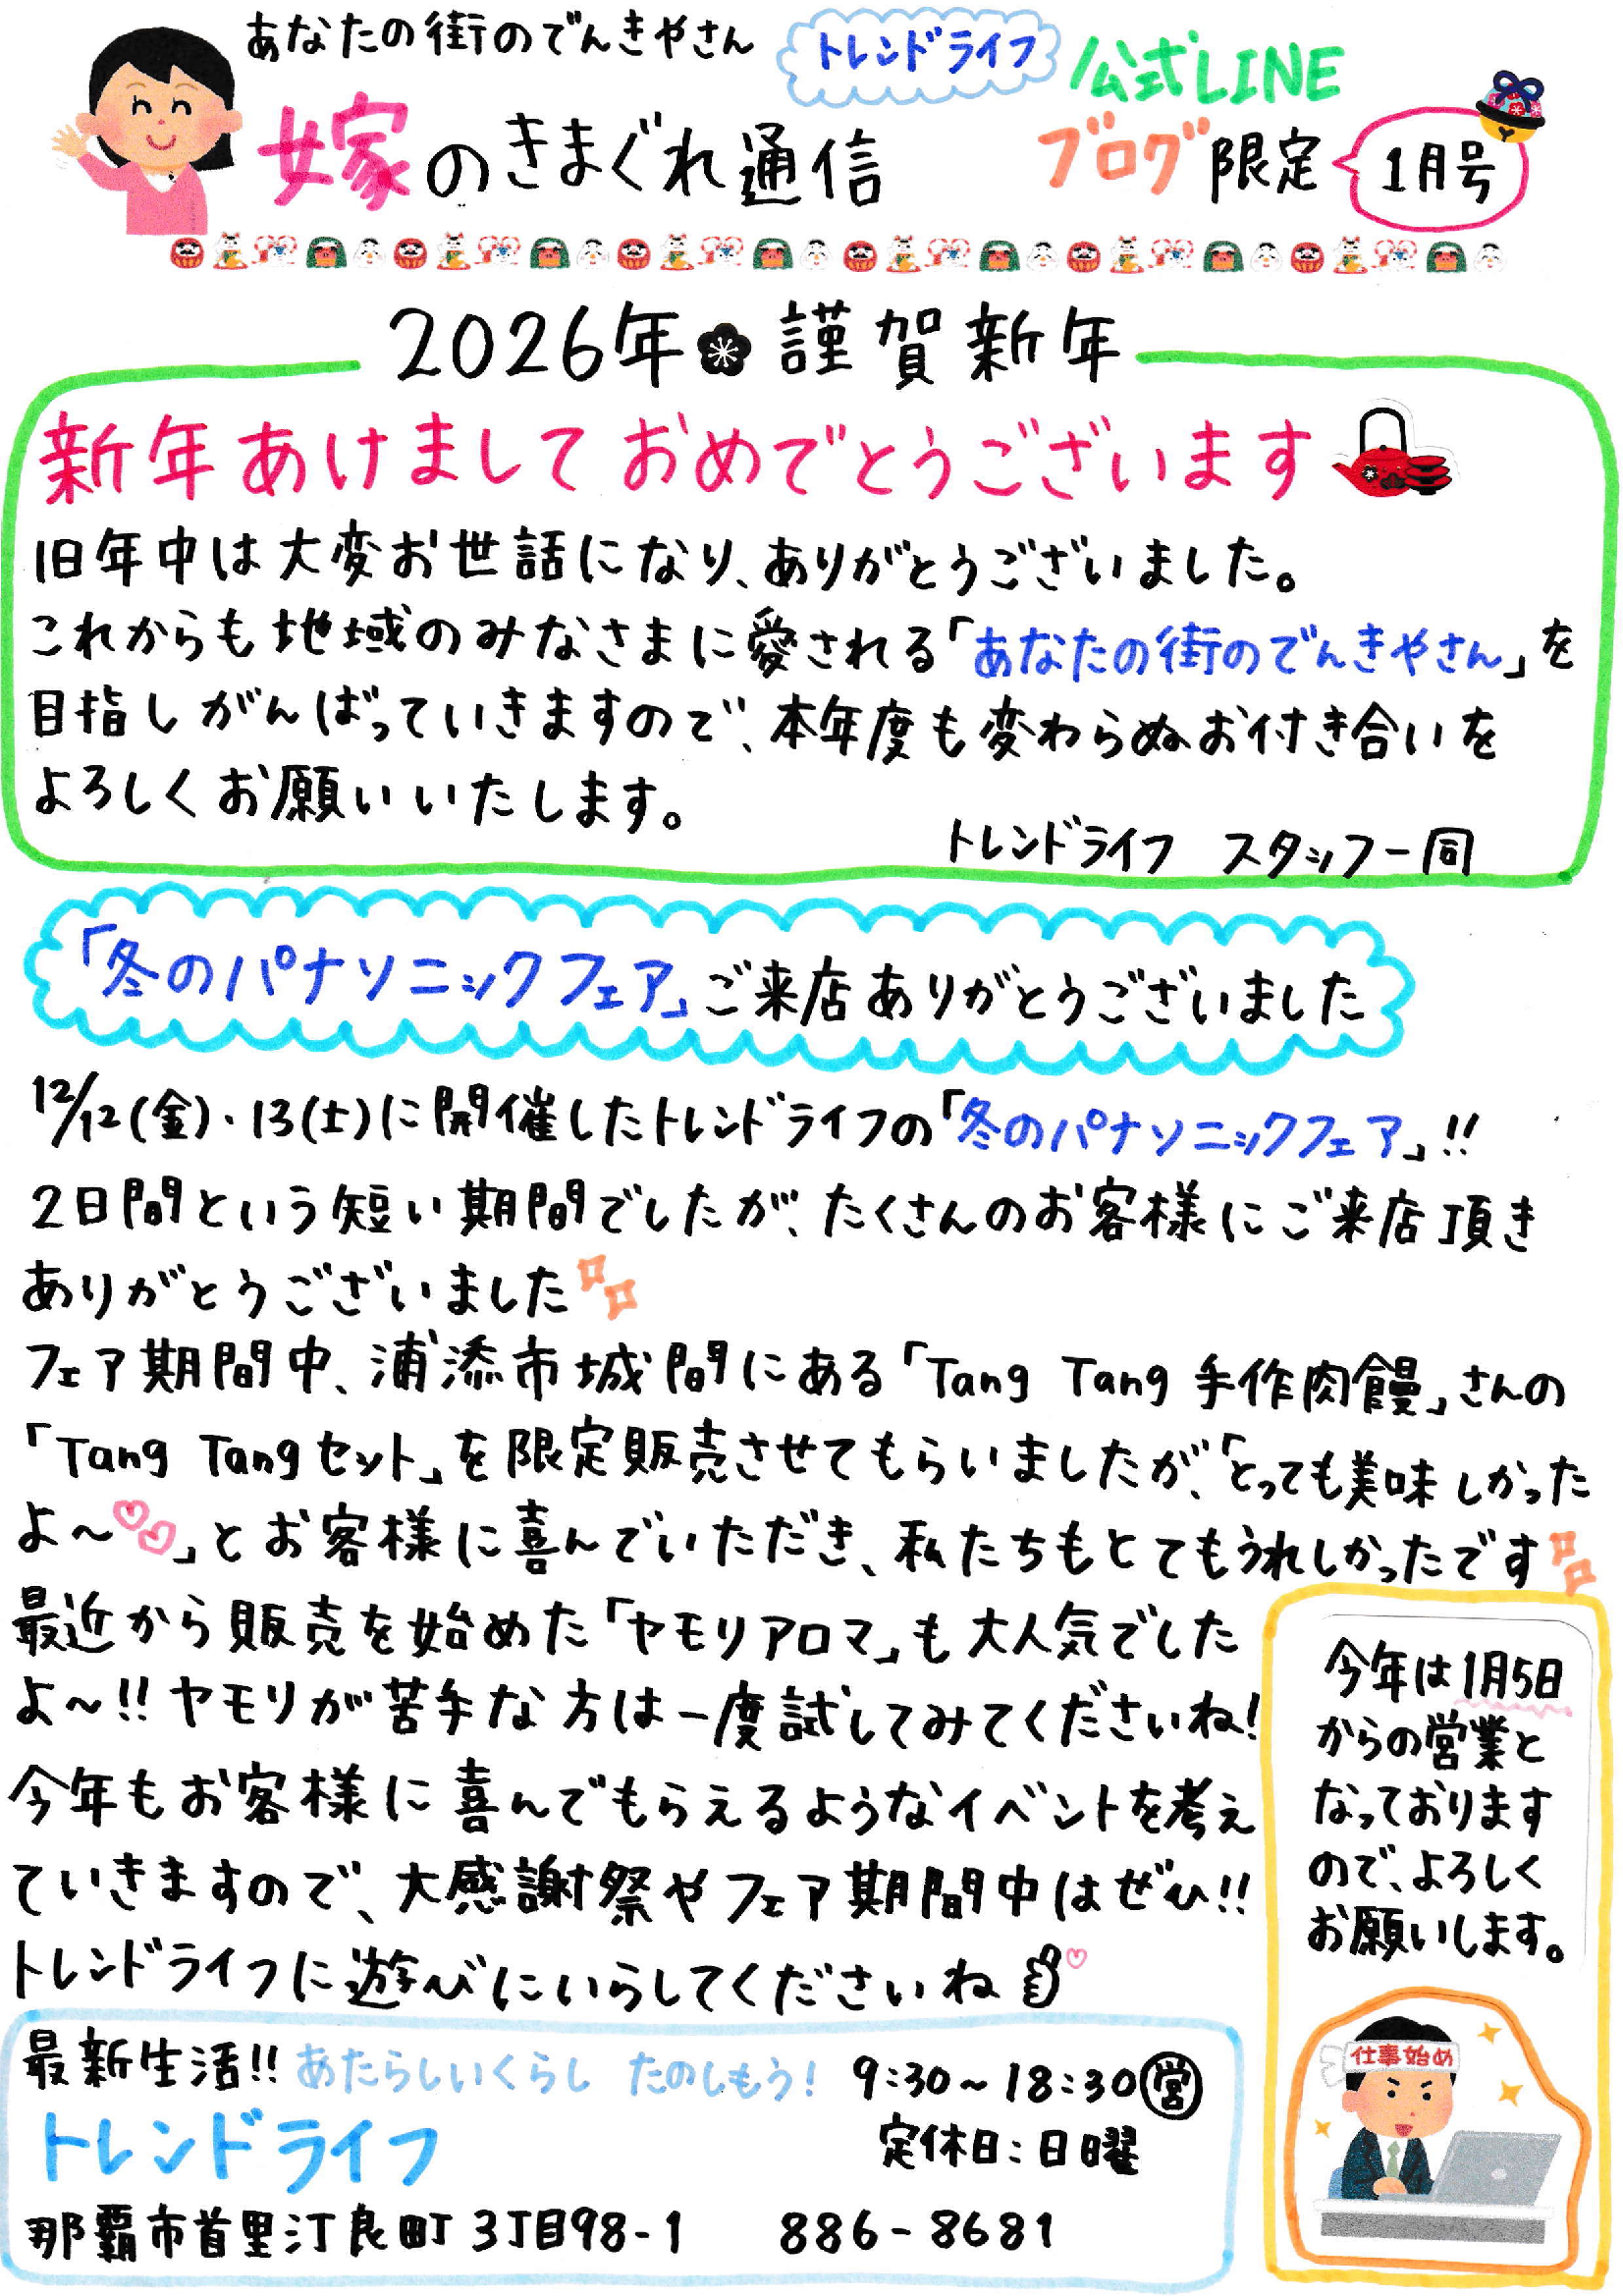 あなたの街のでんきやさん
トレンドライフ
公式LINE
嫁のきまぐれ通信
ブログ限定
1月号
2026年 謹賀新年
新年あけましておめでとうございます
旧年中は大変お世話になり、ありがとうございました。
これからも地域のみなさまに愛される「あなたの街のでんきやさん」を
目指しがんばっていきますので、本年度も変わらぬお付き合いを
よろしくお願いいたします。
トレンドライフ スタッフ一同
「冬のパナソニックフェア」ご来店ありがとうございました
12/12(金)・13(土)に開催したトレンドライフの「冬のパナソニックフェア」!!
2日間という短い期間でしたが、たくさんのお客様にご来店頂き
ありがとうございました
フェア期間中、浦添市城間にある「Tang Tang 手作肉饅」さんの
「Tang Tangセット」を限定販売させてもらいましたが、「とっても美味しかった
よ〜♡♡」とお客様に喜んでいただき、私たちもとてもうれしかったです
最近から販売を始めた「ヤモリアロマ」も大人気でした
よ〜!!ヤモリが苦手な方は一度試してみてくださいね!
今年もお客様に喜んでもらえるようなイベントを考え
ていきますので、大感謝祭やフェア期間中はぜひ!!
トレンドライフに遊びにいらしてくださいね♡
今年は1月5日
からの営業と
なっております
ので、よろしく
お願いします。
仕事始め
最新生活!! あたらしいくらし たのしもう! 9:30〜18:30営
トレンドライフ
定休日:日曜
那覇市首里汀良町3丁目98-1 886-8681